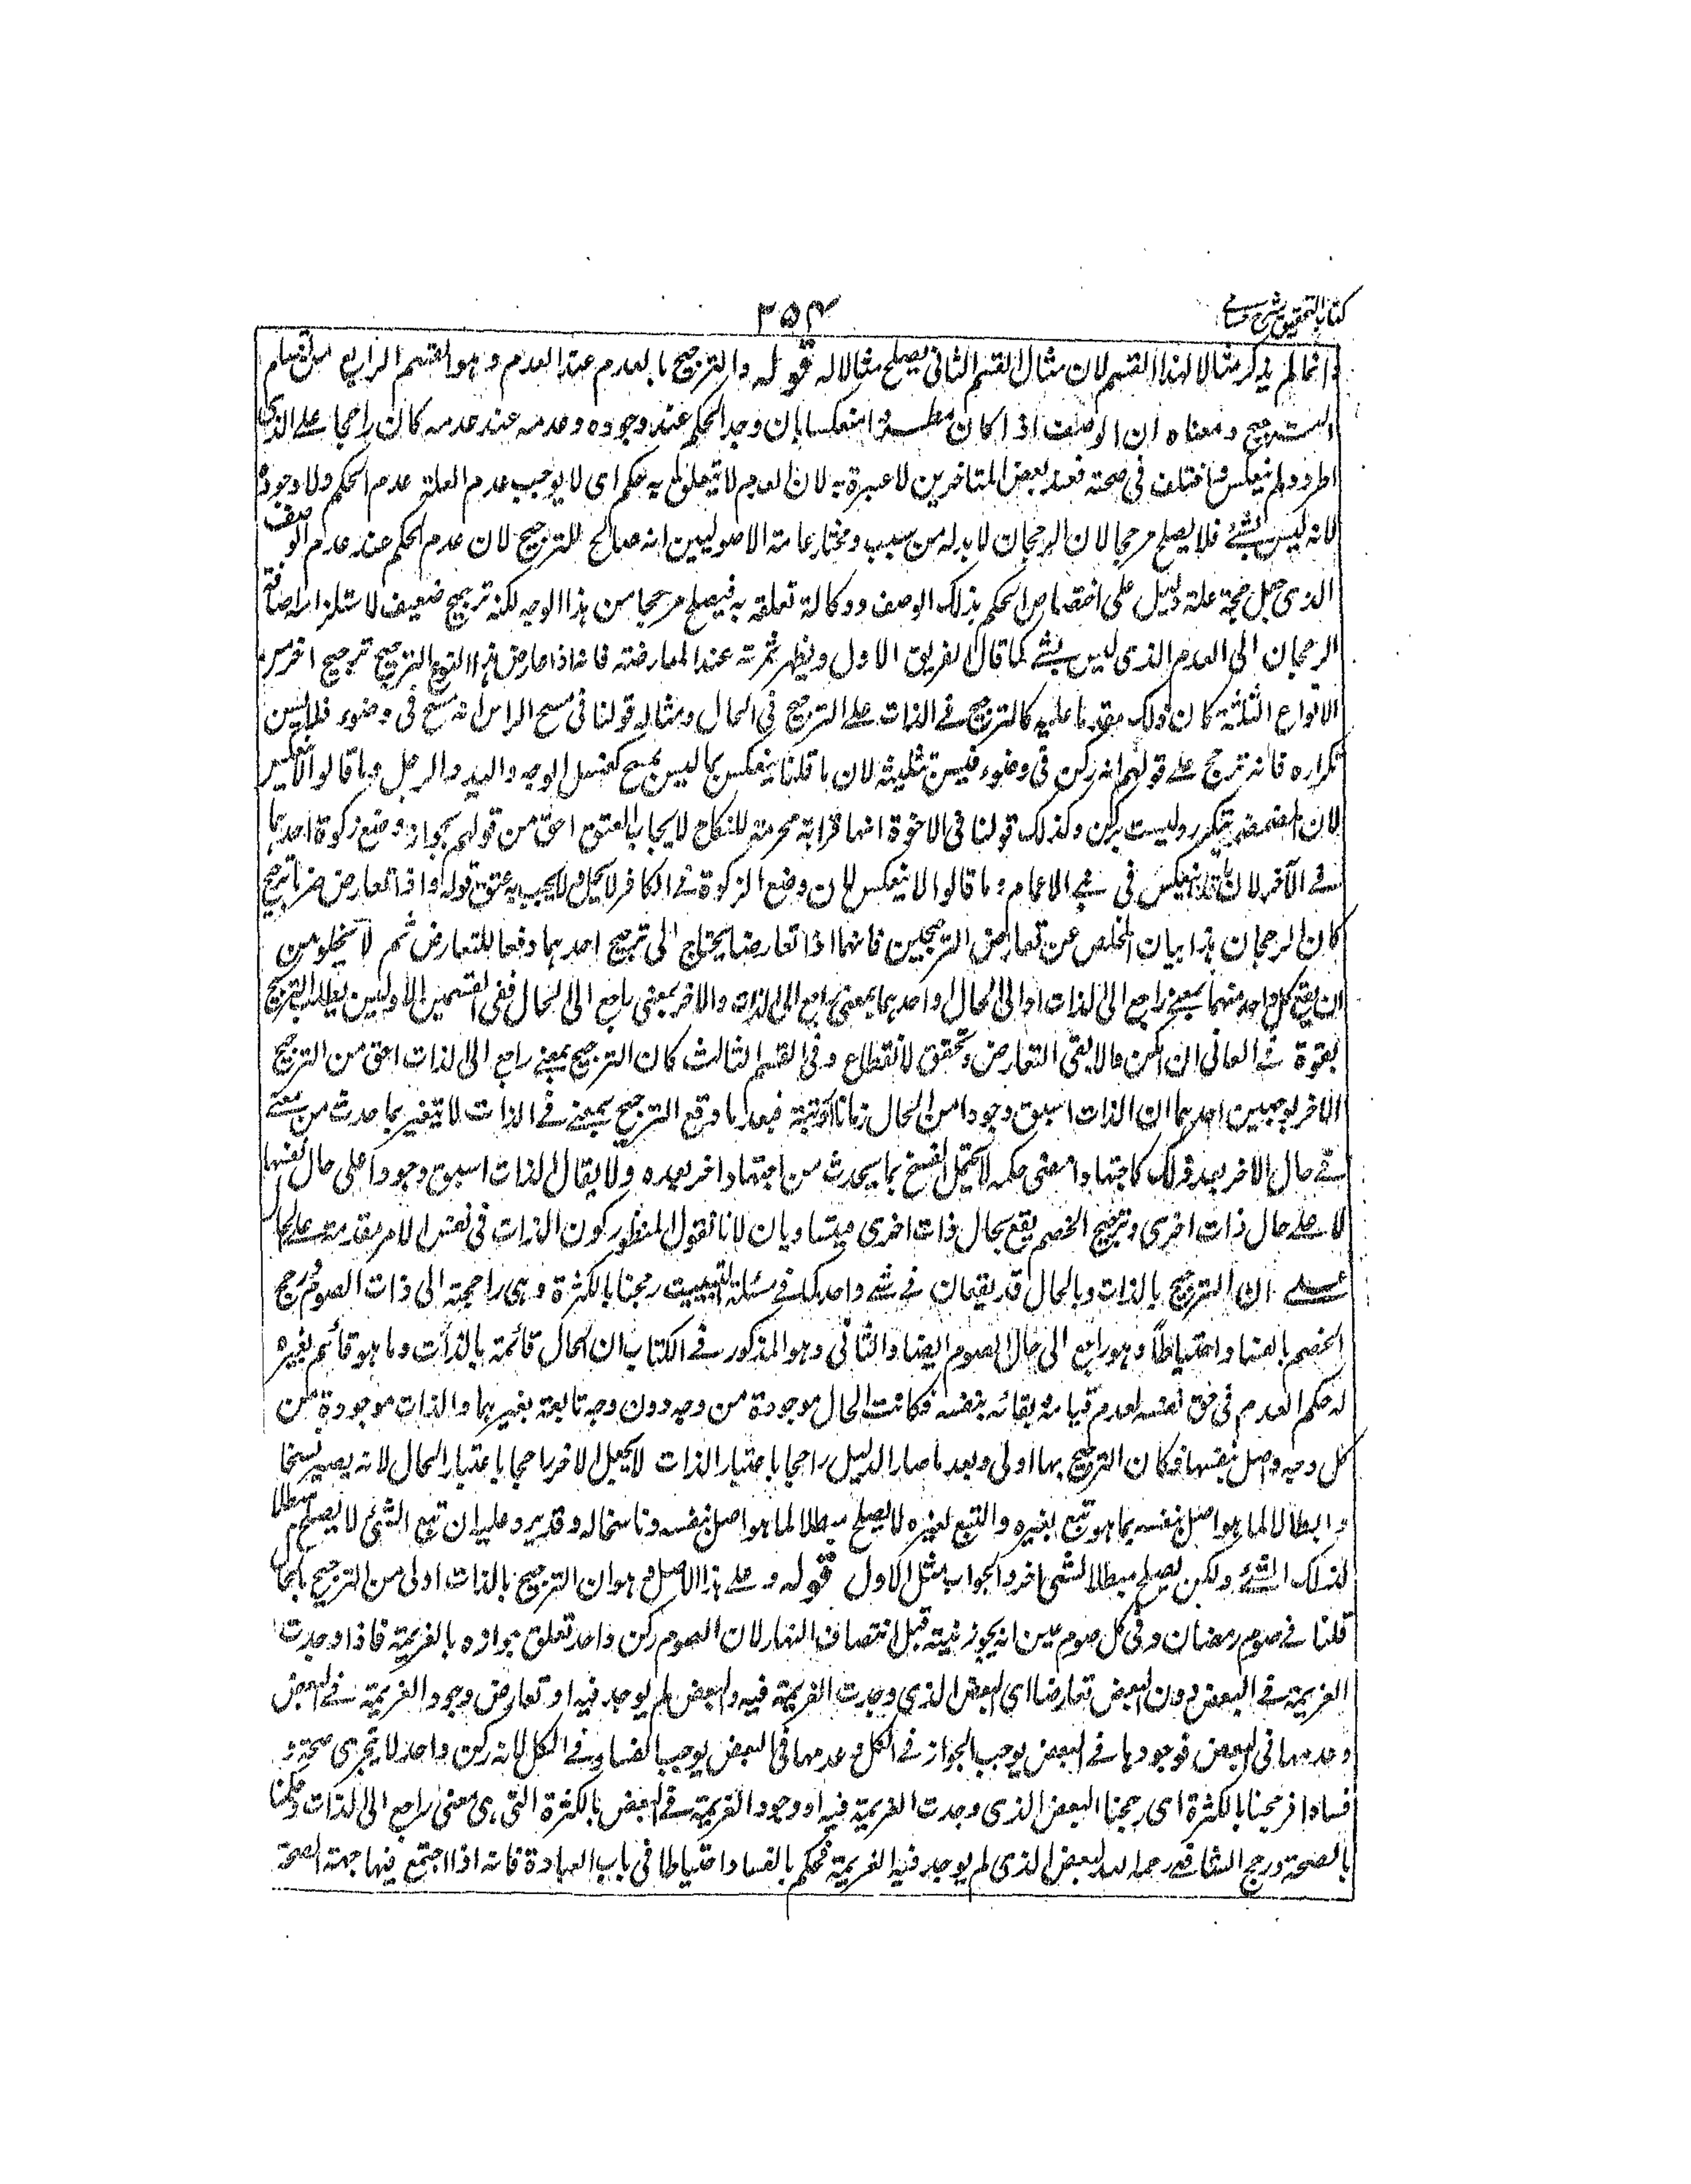 كتاب التحقيق شرح حسامى
٢٥٤
وانما لم يذكر مثالا لهذا القسم لان مثال القسم الثانى يصلح مثالا له قوله والترجيح بالعدم عند العدم وهو القسم الرابع من اقسام
الترجيح ومعناه ان الوصف اذا كان مطردا منعكسا بان وجد الحكم عند وجوده وعدمه عند عدمه كان راجحا على الذى
اطرد ولم ينعكس واختلف فى صحته فعند بعض المتاخرين لا عبرة به لان العدم لا يتعلق به حكم اى لا يوجب عدم العلة عدم الحكم ولا وجوده
لانه ليس بشئ فلا يصلح مرجحا لان الرجحان لا بد له من سبب ومختار عامة الاصوليين انه صالح للترجيح لان عدم الحكم عند عدم الوصف
الذى جعل حجة علة دليل على اختصاص الحكم بذلك الوصف ووكالة تعلقه به فيصلح مرجحا من هذا الوجه لكنه ترجيح ضعيف لاستلزامه اضافة
الرجحان الى العدم الذى ليس بشئ كما قال الفريق الاول ويظهر ثمرته عند المعارضة فانه اذا عارض هذا النوع الترجيح ترجيح اخر من
الانواع الثلثة كان ذلك مقدما عليه كالترجيح فى الذات على الترجيح فى الحال ومثاله قولنا فى مسح الراس انه مسح فى وضوء فلا يسن
تكراره فانه ترجح على قولهم انه ركن فى وضوء فيسن تثليثه لان ما قلنا ينعكس بما ليس بمسح كغسل الوجه واليد والرجل وما قالوا لا ينعكس
لان المضمضة يتكرر وليست بركن وكذلك قولنا فى الاخوة انها قرابة محرمة للنكاح لايجاب العتق احق من قولهم بجواز وضع زكوة احدهما
فى الآخر لان ما قلنا ينعكس فى بنى الاعمام وما قالوا لا ينعكس لان وضع الزكوة فى الكافر لا يحل ولا يجب به عتق قوله واذا تعارض ضربا ترجيح
كان الرجحان هذا بيان المخلص عن تعارض الترجيحين فانهما اذا تعارضا يحتاج الى ترجيح احدهما دفعا للتعارض ثم لا يخلو من
ان يقع كل واحد منهما بمعنى راجع الى الذات او الى الحال او احدهما بمعنى راجع الى الذات والاخر بمعنى راجع الى الحال ففى القسمين الاولين يطلب الترجيح
بقوة فى المعانى ان امكن والا بقى التعارض وتحقق الانقطاع وفى القسم الثالث كان الترجيح بمعنى راجع الى الذات احق من الترجيح
الاخر بوجهين احدهما ان الذات اسبق وجودا من الحال زمانا او رتبة فبعد ما وقع الترجيح بمعنى فى الذات لا يتغير بما حدث من معنى
فى حال الاخر بعد ذلك كاجتهاد امضى حكمه لا يحتمل الفسخ بما يحدث من اجتهاد اخر بعده ولا يقال الذات اسبق وجودا على حال نفسها
لا على حال ذات اخرى وترجيح الخصم يقع بحال ذات اخرى فيتساويان لانا نقول المنظور كون الذات فى نفس الامر مقدمة على الحال
على ان الترجيح بالذات وبالحال قد يقعان فى شئ واحد كما فى مسئلة التبييت رجحنا بالكثرة وهى راجعة الى ذات الصوم ورجح
الخصم بالفساد احتياطا وهو راجع الى حال الصوم ايضا والثانى وهو المذكور فى الكتاب ان الحال قائمة بالذات وما هو قائم بغيره
له حكم العدم فى حق نفسه لعدم قيامه بقائه بنفسه فكانت الحال موجودة من وجه دون وجه تابعة بغيرها والذات موجودة من
كل وجه واصل بنفسها فكان الترجيح بها اولى وبعد ما صار الدليل راجحا باعتبار الذات لا يجعل الاخر راجحا باعتبار الحال لانه يصير نسخا
وابطالا لما هو اصل بنفسه بما هو تبع بغيره والتبع لغيره لا يصلح مبطلا لما هو اصل بنفسه وناسخا له وقد يرد عليه ان تبع الشئ لا يصلح مبطلا
لذلك الشئ ولكن يصلح مبطلا لشئ اخر والجواب مثل الاول قوله وعلى هذا الاصل وهو ان الترجيح بالذات اولى من الترجيح بالحال
قلنا فى صوم رمضان وفى كل صوم عين انه يجوز نيته قبل انتصاف النهار لان الصوم ركن واحد تعلق جوازه بالعزيمة فاذا وجدت
العزيمة فى البعض دون البعض تعارضا اى البعض الذى وجدت العزيمة فيه والبعض لم يوجد فيه او تعارض وجود العزيمة فى البعض
وعدمها فى البعض فوجودها فى البعض يوجب الجواز فى الكل وعدمها فى البعض يوجب الفساد فى الكل لانه ركن واحد لا يتجزى صحة و
فسادا فرجحنا بالكثرة اى رجحنا البعض الذى وجدت العزيمة فيه او وجود العزيمة فى البعض بالكثرة التى هى معنى راجع الى الذات وحكمنا
بالصحة ورجح الشافعى رحمه الله البعض الذى لم يوجد فيه العزيمة فحكم بالفساد احتياطا فى باب العبادة فانه اذا اجتمع فيها جهة الصحة